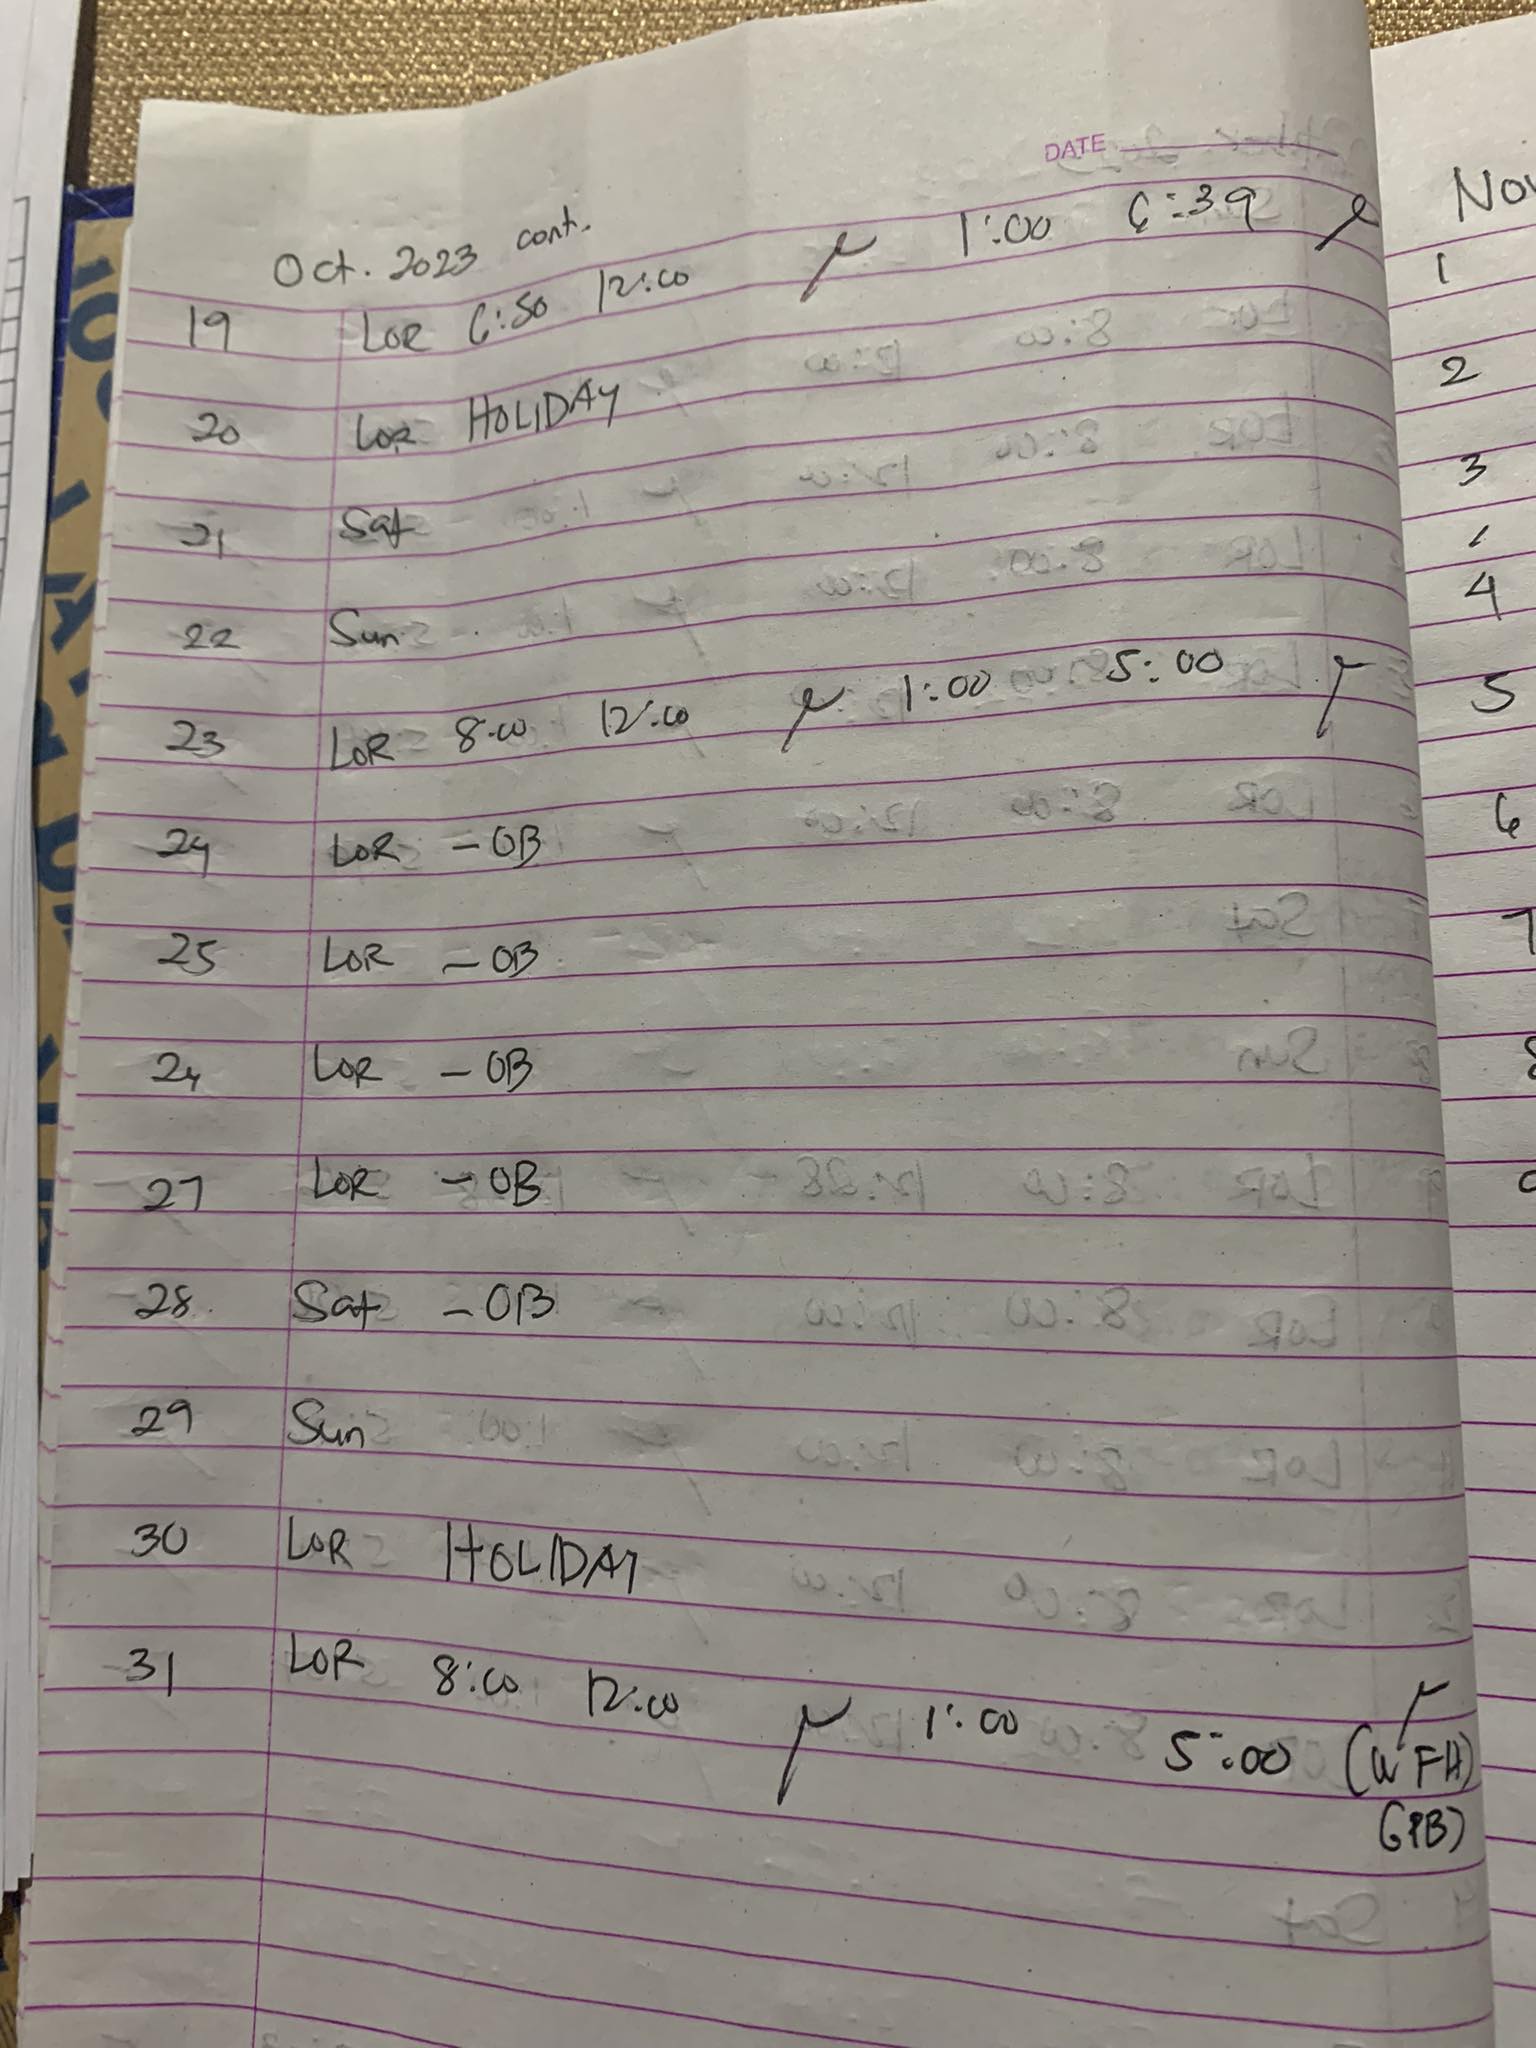 DATE
Oct. 2023 cont.
19 LOR 6:50 12:00 1:00 6:39
20 LOR HOLIDAY
21 Sat
22 Sun
23 LOR 8:00 12:00 1:00 5:00
24 LOR - OB
25 LOR - OB
24 LOR - OB
27 LOR - OB
28 Sat - OB
29 Sun
30 LOR HOLIDAY
31 LOR 8:00 12:00 1:00 5:00 (WFH)
GPB)
Nov
1
2
3
4
5
6
7
8